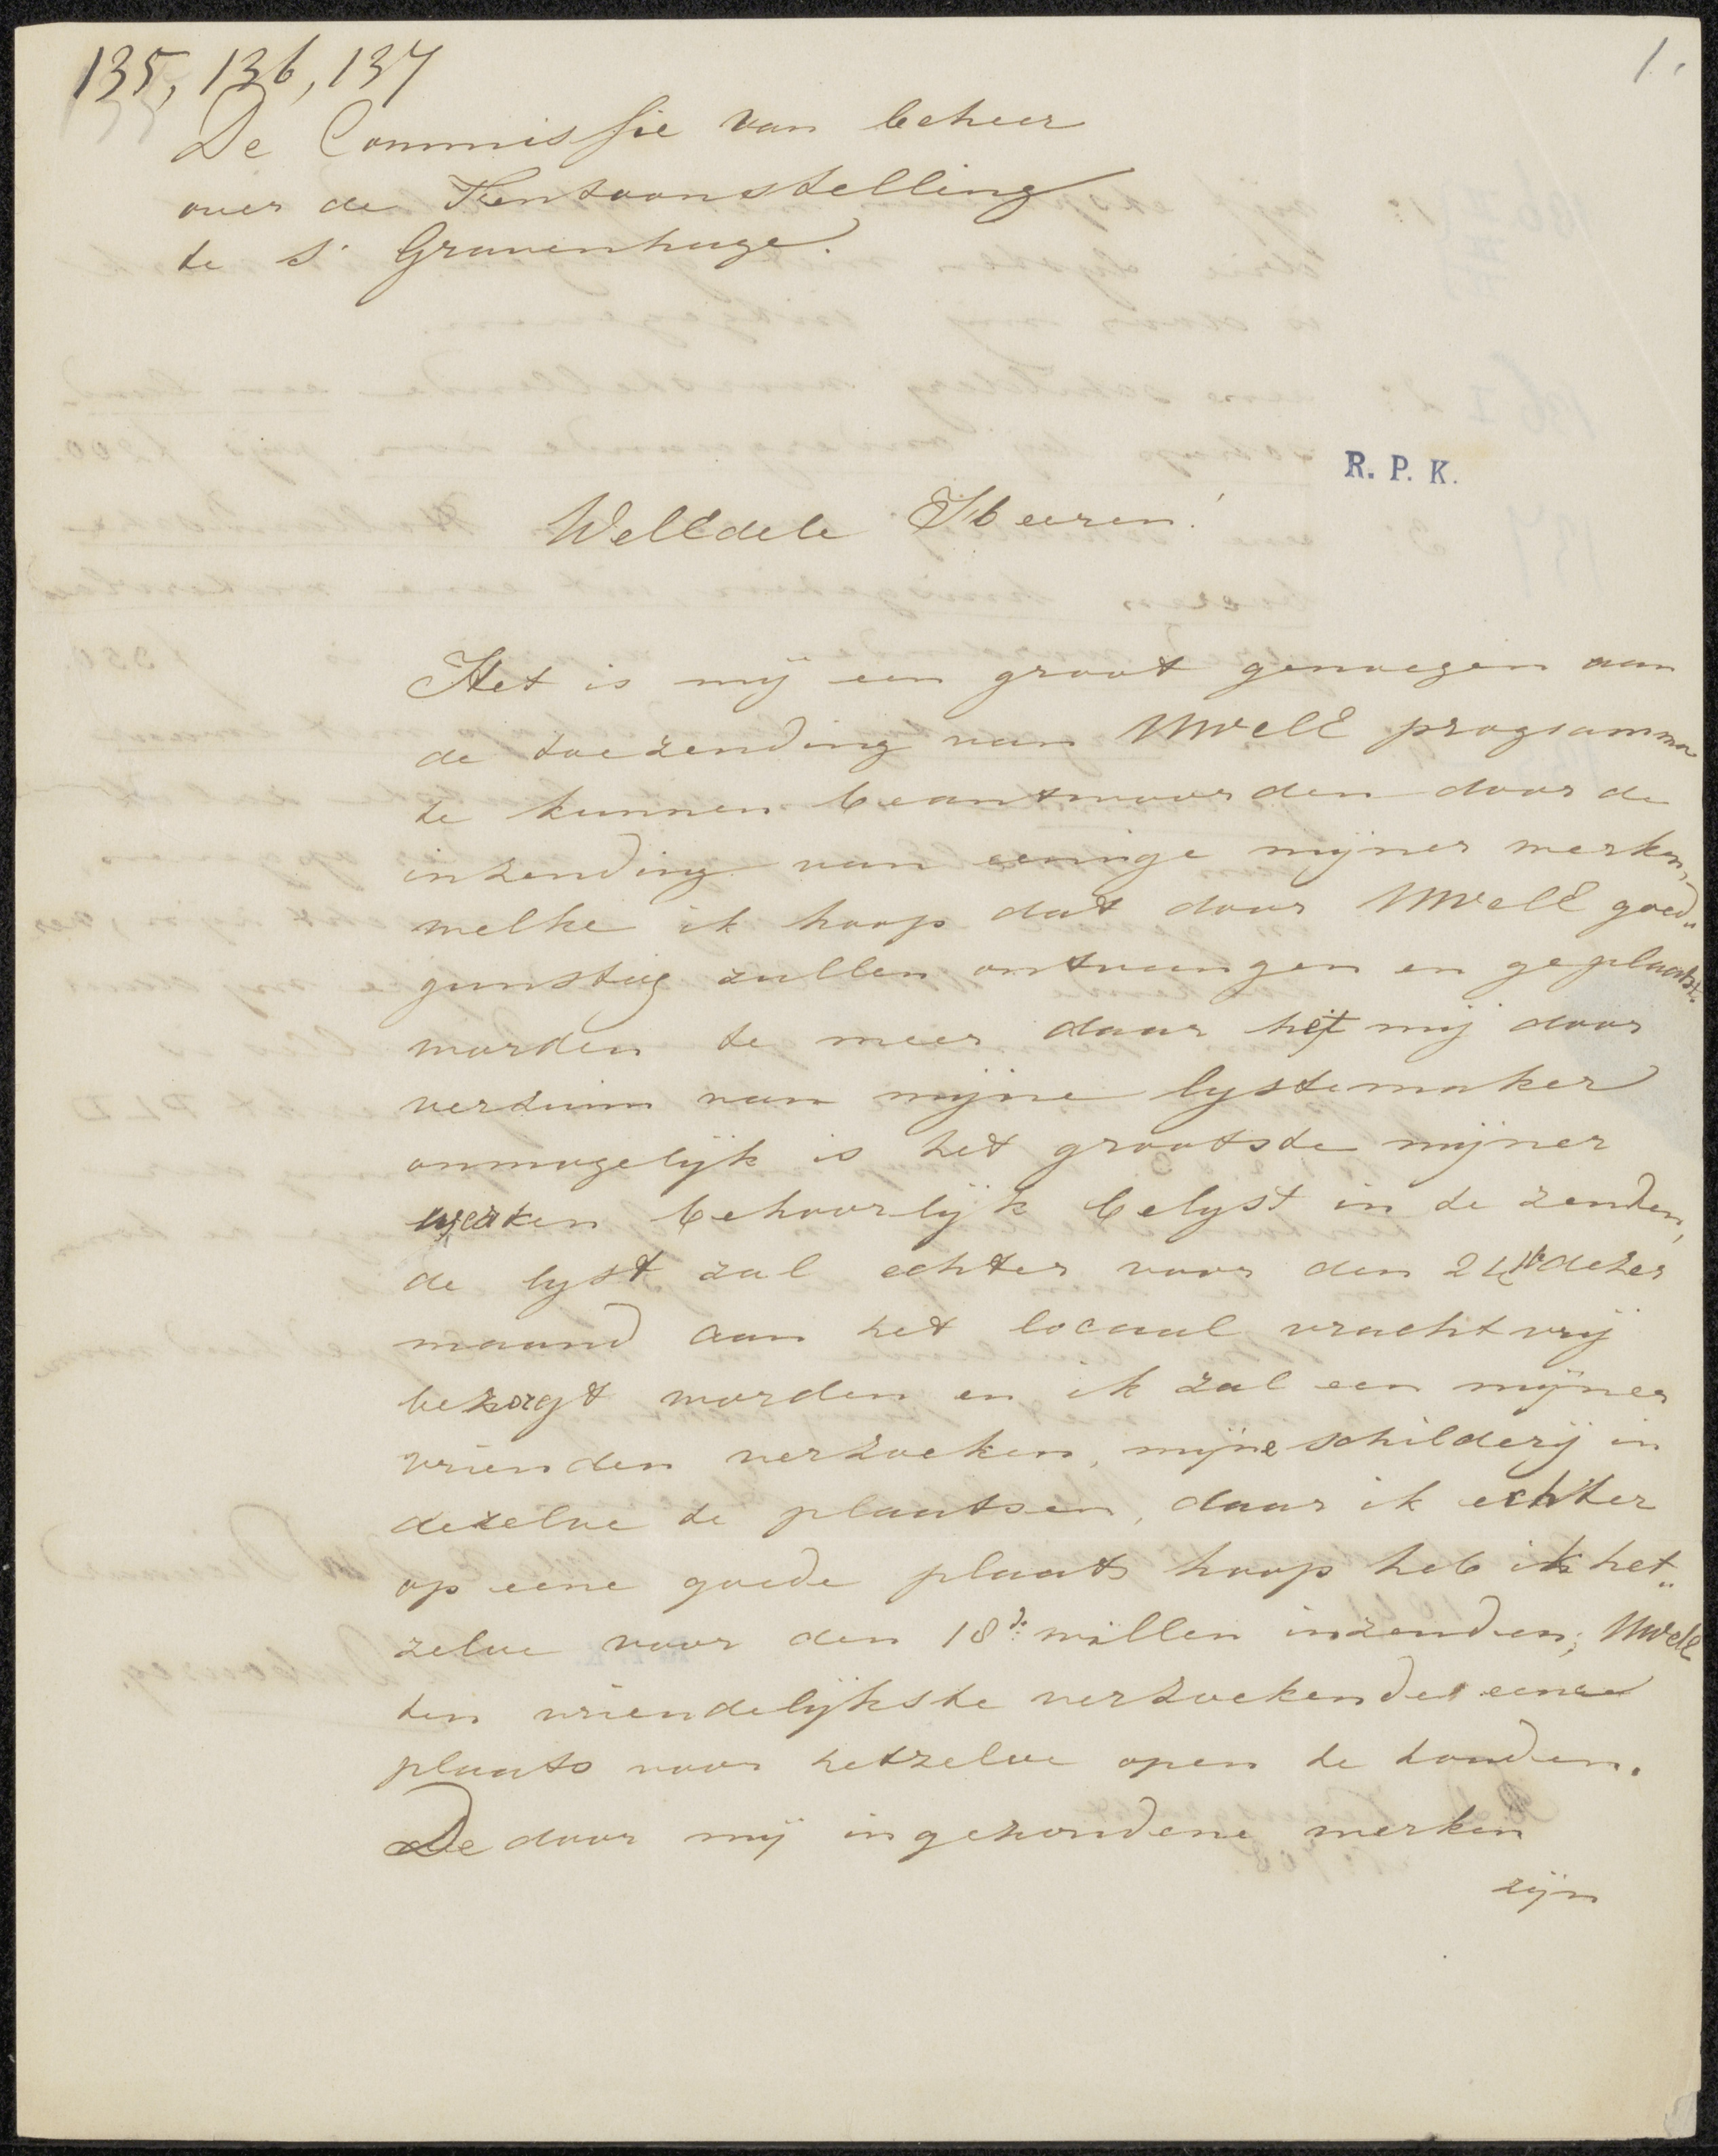 135, 136, 137
1.
De Commissie van beheer
over de Tentoonstelling
te s' Gravenhage.
R. P. K.
WelEdele Heeren!
Het is mij een groot genoegen aan
de toezending van UWelE programma
te kunnen beantwoorden door de
inzending van eenige mijner werken,
welke ik hoop dat door UWelE goed„
gunstig zullen ontvangen en geplaatst
worden te meer daar het mij door
verzuim van mijne lystemaker
onmogelijk is het grootste mijner
werken behoorlijk belyst in te zenden,
de lyst zal echter voor den 24 dezer
maand aan het locaal vrachtvrij
bezorgt worden en ik zal een mijner
vrienden verzoeken, mijne schilderij in
dezelve te plaatsen, daar ik echter
op eene goede plaats hoop heb ik het„
zelve voor den 18de willen inzenden; UWelE
ten vriendelijkste verzoekende eene
plaats voor hetzelve open te houden.
De door mij ingezondene werken
zijn